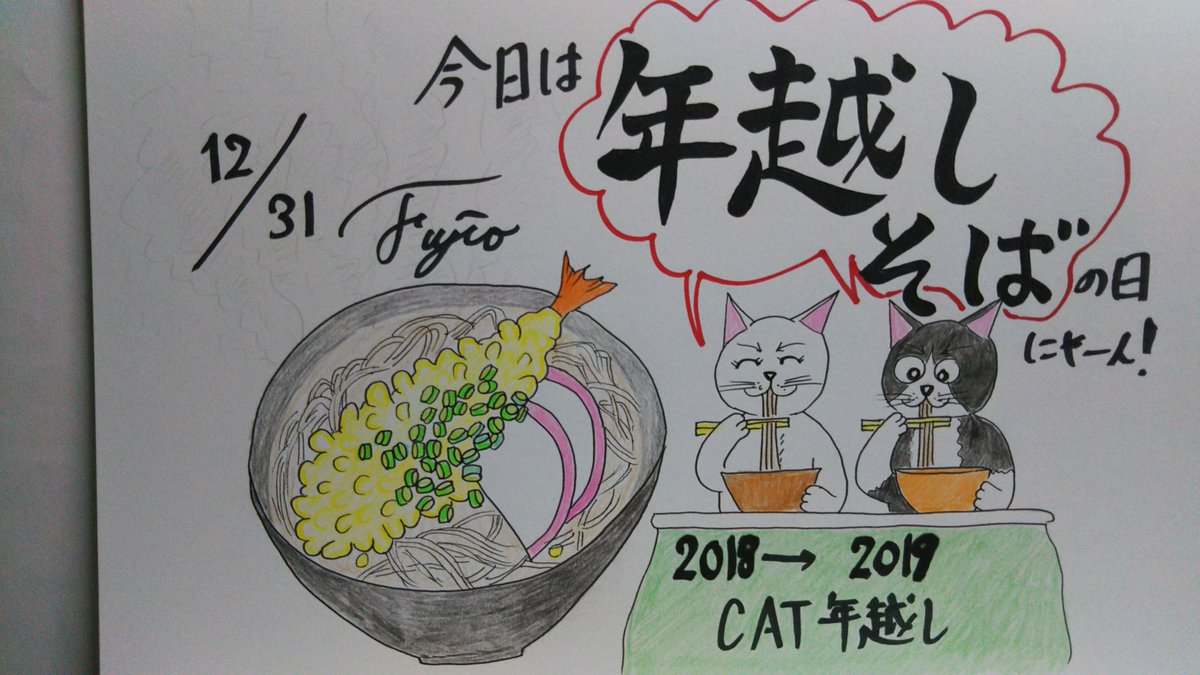 今日は
年越し
そばの日
にゃーん!
12/31
Fujio
2018→2019
CAT年越し